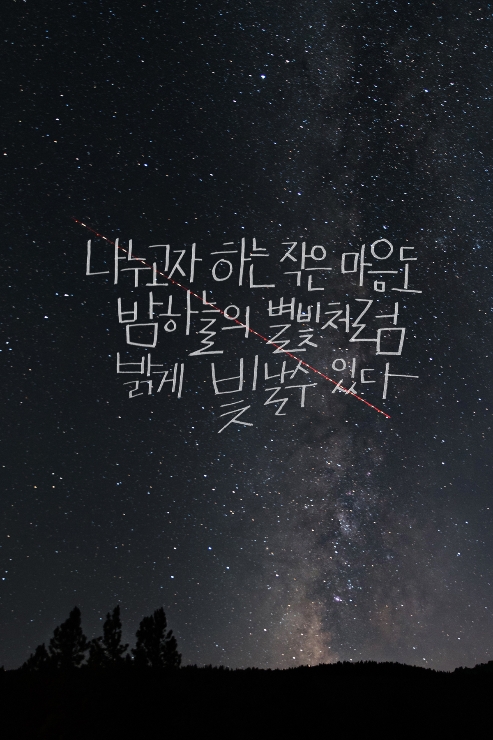 나누고자 하는 작은 마음도
밤하늘의 별빛처럼
밝게 빛날수 있다